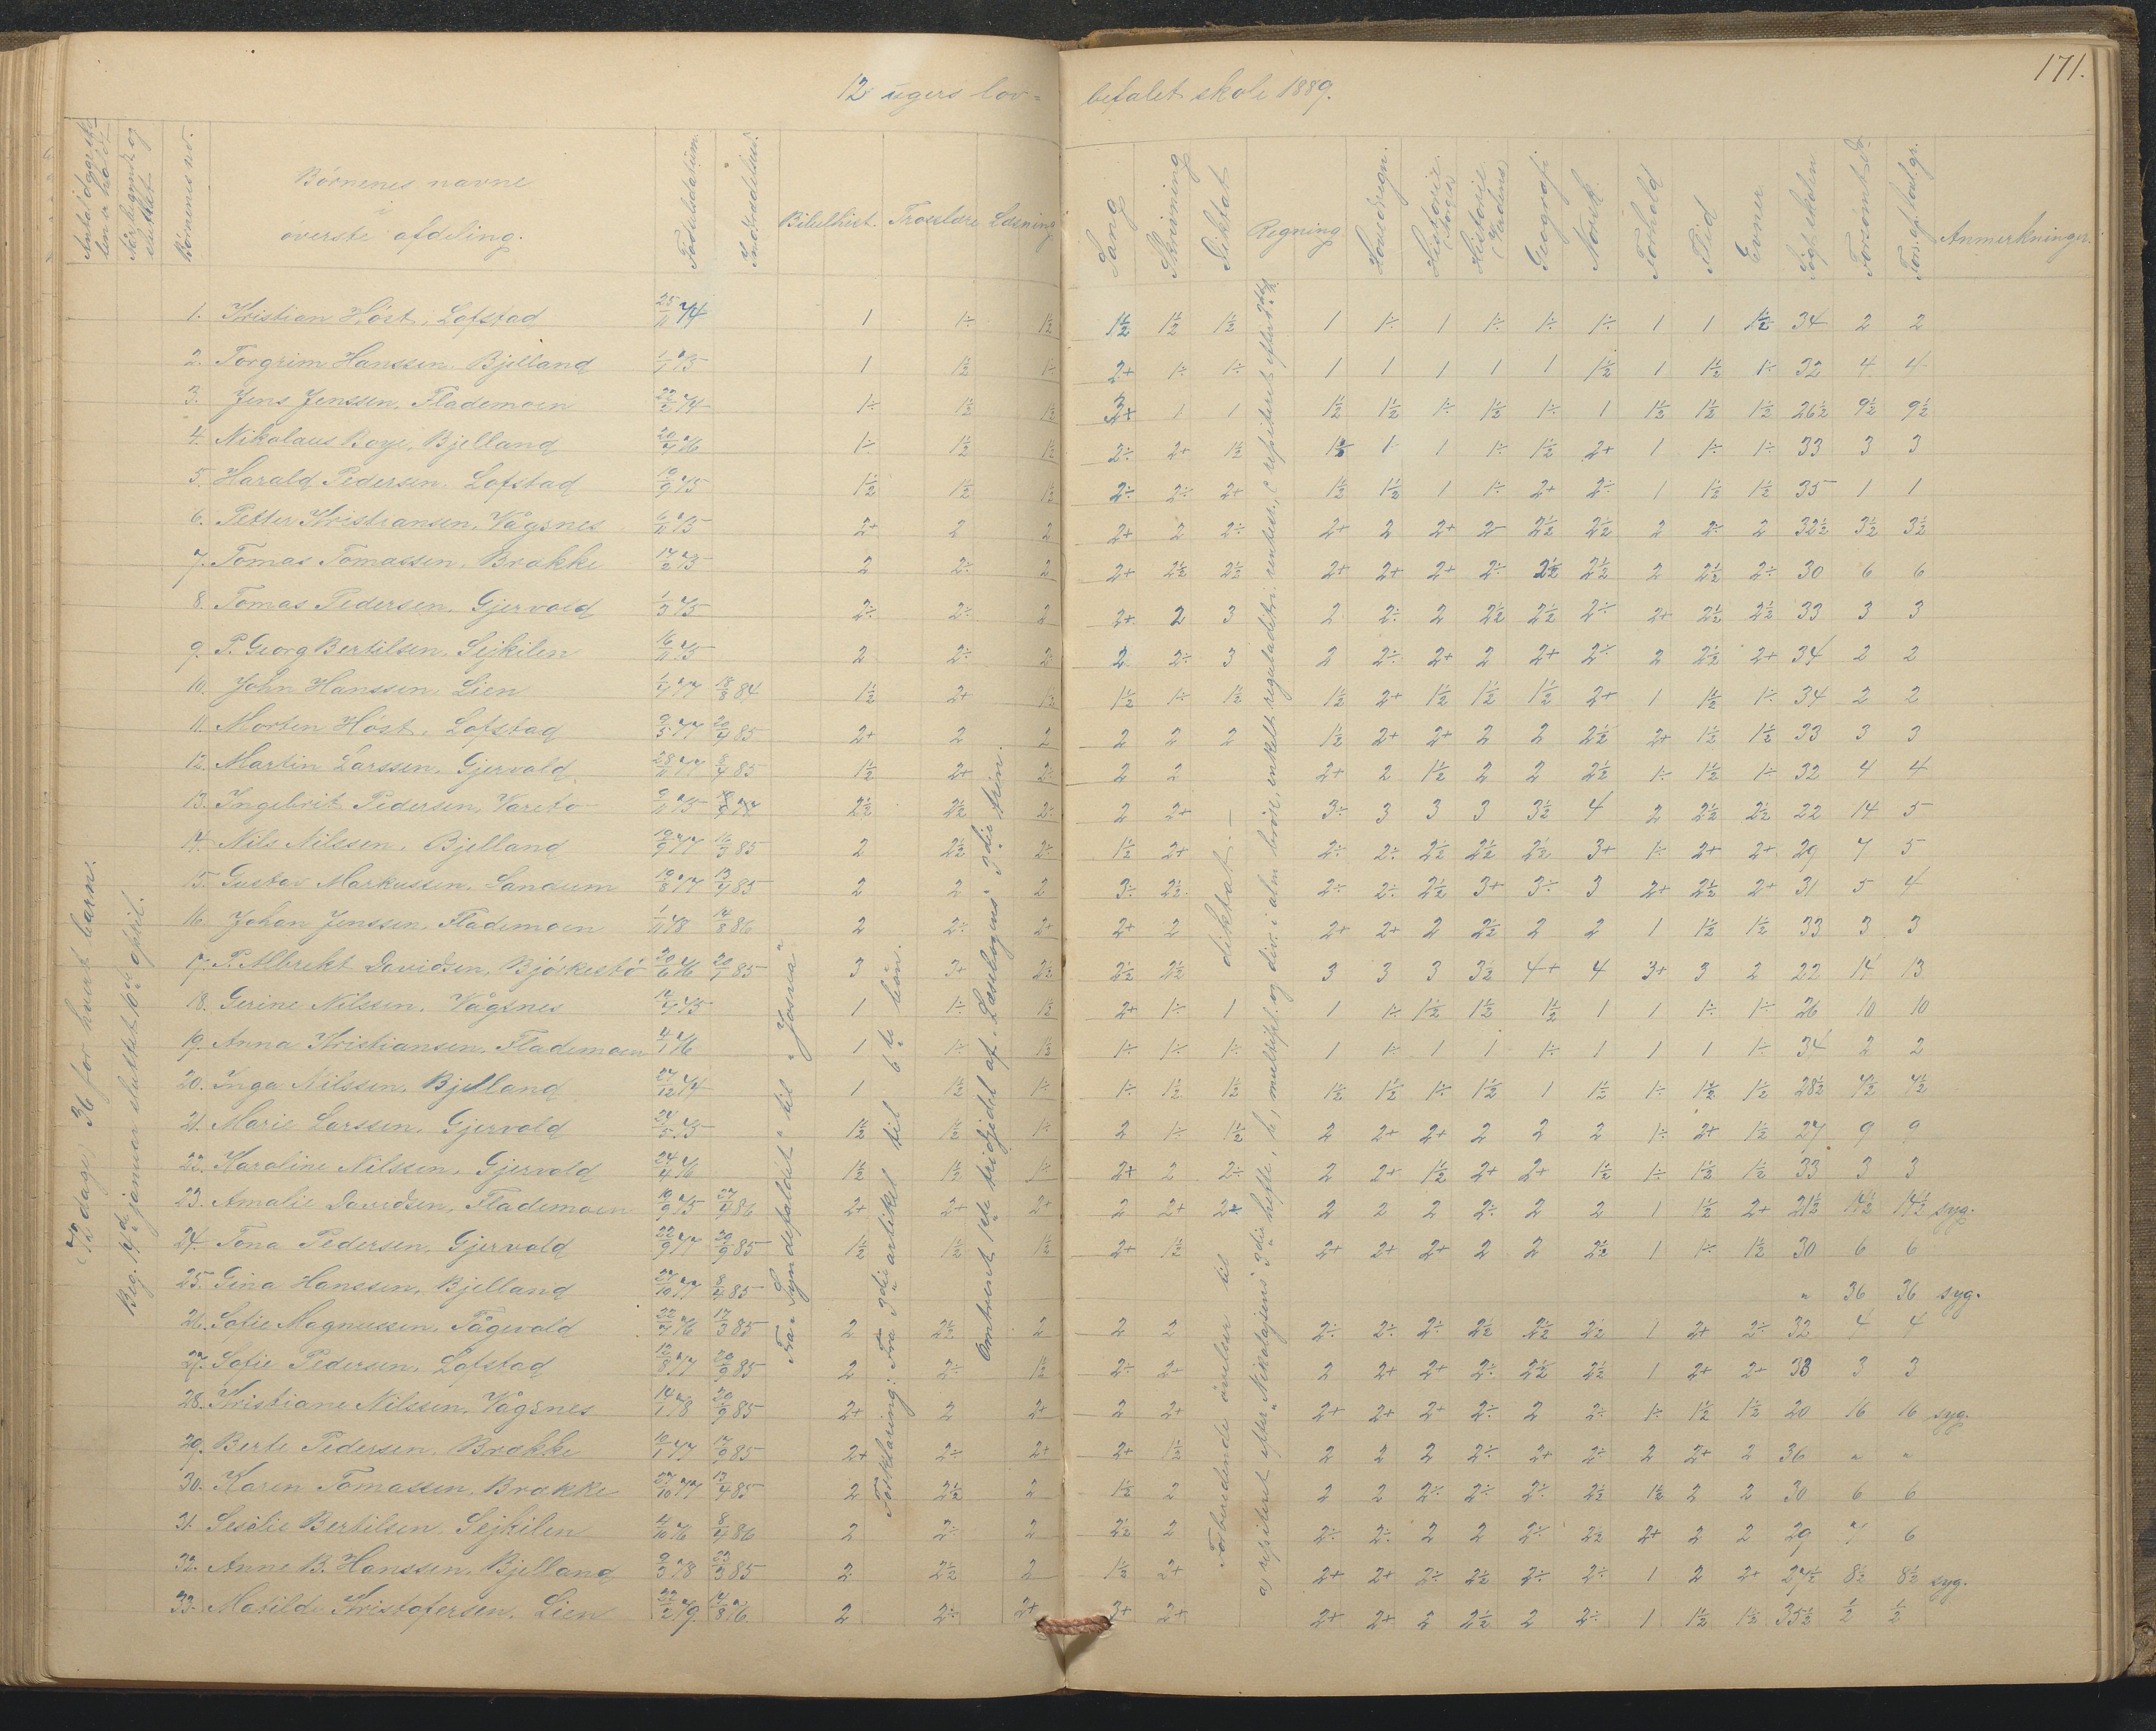 171.
12 ugers lov=
befalet skole 1889.
Børnenes no.
Børnenes navne
i
øverste afdeling.
Fødselsdatum
Bibelhist. Troeslære Læsning
Sang Skrivning Diktat Regning Hovedregn. Historie (Norges) Historie (Verdens) Geografi Norsk Forhold Flid Evner Søgt skolen Forsømt do. Fors. af lovl. gr. Anmerkninger.
72 dage, 36 for hvert barn.
Beg. 14d januar sluttet 10de april.
Fra „Syndefaldet" til „Josva"
Forklaring: Fra 3die artikel til 6te bøn.
Omtrent 1ste tridjedel af „Læsebogens" 3die trin.
Forberedende øvelser til diktat.—
1. Kristian Høst, Lofstad 25/11 74 1 1÷ 1½ 1½ 1½ 1½ 1 1÷ 1 1÷ 1÷ 1÷ 1 1 1½ 34 2 2
2. Torgrim Hanssen, Bjelland 1/7 75 1 1½ 1÷ 2+ 1÷ 1÷ 1 1 1 1 1 1½ 1 1½ 1÷ 32 4 4
3. Jens Jenssen, Flademoen 22/2 74 1÷ 1½ 1½ 2+ 1 1 1½ 1½ 1÷ 1½ 1÷ 1 1½ 1½ 1½ 26½ 9½ 9½
4. Nikolaus Boye, Bjelland 20/7 76 1÷ 1½ 1½ 2÷ 2+ 1½ 1½ 1÷ 1 1÷ 1½ 2+ 1 1÷ 1÷ 33 3 3
5. Harald Pedersen, Lofstad 10/9 75 1½ 1½ 1½ 2÷ 2÷ 2+ 1½ 1½ 1 1÷ 2+ 2÷ 1 1½ 1½ 35 1 1
6. Petter Kristiansen, Vågsnes 6/11 73 2+ 2 2 2+ 2 2÷ 2+ 2 2+ 2 2½ 2½ 2 2÷ 2 32½ 3½ 3½
7. Tomas Tomassen, Brække 17/2 73 2 2÷ 2 2+ 2½ 2½ 2+ 2+ 2+ 2÷ 2½ 2½ 2 2½ 2÷ 30 6 6
8. Tomas Pedersen, Gjervold 1/3 75 2÷ 2÷ 2 2+ 2 3 2 2÷ 2 2½ 2½ 2÷ 2+ 2½ 2½ 33 3 3
9. P. Georg Bertilsen, Sejkilen 16/11 75 2 2÷ 2+ 2 2÷ 3 2 2÷ 2+ 2 2+ 2÷ 2 2½ 2+ 34 2 2
10. John Hanssen, Lien 1/7 77 18/8 84 1½ 2+ 1½ 1½ 1÷ 1½ 1½ 2+ 1½ 1½ 1½ 2+ 1 1½ 1÷ 34 2 2
11. Morten Høst, Lofstad 9/5 77 20/4 85 2+ 2 2 2 2 2 1½ 2+ 2+ 2 2 2½ 2+ 1½ 1½ 33 3 3
12. Martin Larssen, Gjervold 28/11 77 8/4 85 1½ 2+ 2÷ 2 2 2+ 2 1½ 2 2 2½ 1÷ 1½ 1÷ 32 4 4
13. Ingebrit Pedersen, Varetø 9/11 75 2½ 2½ 2÷ 2 2+ 3÷ 3 3 3 3½ 4 2 2½ 2½ 22 14 5
14. Nils Nilssen, Bjelland 10/9 77 16/3 85 2 2½ 2÷ 1½ 2+ 2÷ 2÷ 2½ 2½ 2½ 3+ 1÷ 2+ 2+ 29 7 5
15. Gustav Markussen, Sandum 10/8 77 13/4 85 2 2 2 3÷ 2½ 2÷ 2÷ 2½ 3+ 3÷ 3 2+ 2½ 2+ 31 5 4
16. Johan Jenssen, Flademoen 1/11 78 14/8 86 2 2÷ 2+ 2+ 2 2+ 2+ 2 2½ 2 2 1 1½ 1½ 33 3 3
17. P. Albrekt Davidsen, Bjørkestø 20/6 76 20/7 85 3 3+ 2½ 2½ 2½ 3 3 3 3½ 4+ 4 3+ 3 2 22 14 13
18. Gerine Nilssen, Vågsnes 14/7 75 1 1÷ 1½ 2+ 1÷ 1 1 1÷ 1½ 1½ 1½ 1 1 1÷ 1÷ 26 10 10
19. Anna Kristiansen, Flademoen 4/1 76 1 1÷ 1½ 1÷ 1÷ 1÷ 1 1÷ 1 1 1÷ 1 1 1 1÷ 34 2 2
20. Inga Nilssen, Bjelland 27/12 74 1 1½ 1÷ 1÷ 1½ 1½ 1½ 1½ 1÷ 1½ 1 1½ 1÷ 1½ 1½ 28½ 7½ 7½
21. Marie Larssen, Gjervold 24/5 75 1½ 1½ 1÷ 2 1÷ 1½ 2 2+ 2+ 2 2 2 1÷ 2+ 1½ 27 9 9
22. Karoline Nilssen, Gjervold 24/4 76 1½ 1½ 1÷ 2+ 2 2÷ 2 2+ 1½ 2+ 2+ 1½ 1÷ 1½ 1½ 33 3 3
23. Amalie Davidsen, Flademoen 10/9 75 27/4 86 2+ 2+ 2+ 2 2+ 2+ 2 2 2 2÷ 2 2 1 1½ 2+ 21½ 14½ 14½ syg.
24. Tona Pedersen, Gjervold 22/9 77 20/9 85 1½ 1½ 1½ 2+ 1½ 2+ 2+ 2+ 2 2 2½ 1 1÷ 1½ 30 6 6
25. Gina Hanssen, Bjelland 27/10 77 8/4 85 „ 36 36 syg.
26. Sofie Magnussen, Tågevold 22/7 76 17/3 85 2 2½ 2 2 2 2÷ 2÷ 2÷ 2½ 2½ 2½ 1 2+ 2÷ 32 4 4
27. Sofie Pedersen, Lofstad 12/8 77 20/9 85 2 2÷ 1½ 2÷ 2+ 2 2+ 2+ 2÷ 2½ 2½ 1 2+ 2+ 33 3 3
28. Kristiane Nilssen, Vågsnes 14/1 78 20/9 85 2+ 2 2+ 2 2+ 2+ 2+ 2+ 2÷ 2 2÷ 1÷ 1½ 1½ 20 16 16 syg.
29. Berte Pedersen, Brække 10/1 77 17/9 85 2+ 2÷ 2+ 2+ 1½ 2 2 2 2÷ 2+ 2÷ 2 2+ 2 36 „ „
30. Karen Tomassen, Brække 27/10 77 13/4 85 2 2½ 2 1½ 2 2 2 2÷ 2÷ 2÷ 2½ 1½ 2 2 30 6 6
31. Sesilie Bertilsen, Sejkilen 4/10 76 8/4 86 2 2÷ 2 2½ 2 2÷ 2÷ 2 2 2÷ 2½ 2+ 2 2 29 7 6
32. Anne B. Hanssen, Bjelland 9/3 78 23/3 85 2 2½ 2 1½ 2+ 2+ 2+ 2÷ 2½ 2÷ 2÷ 1 2 2+ 27½ 8½ 8½ syg.
33. Matilde Kristofersen, Lien 22/2 79 2 2÷ 2+ 3+ 2+ 2+ 2+ 2 2½ 2 2÷ 1 1½ 1½ 35½ ½ ½